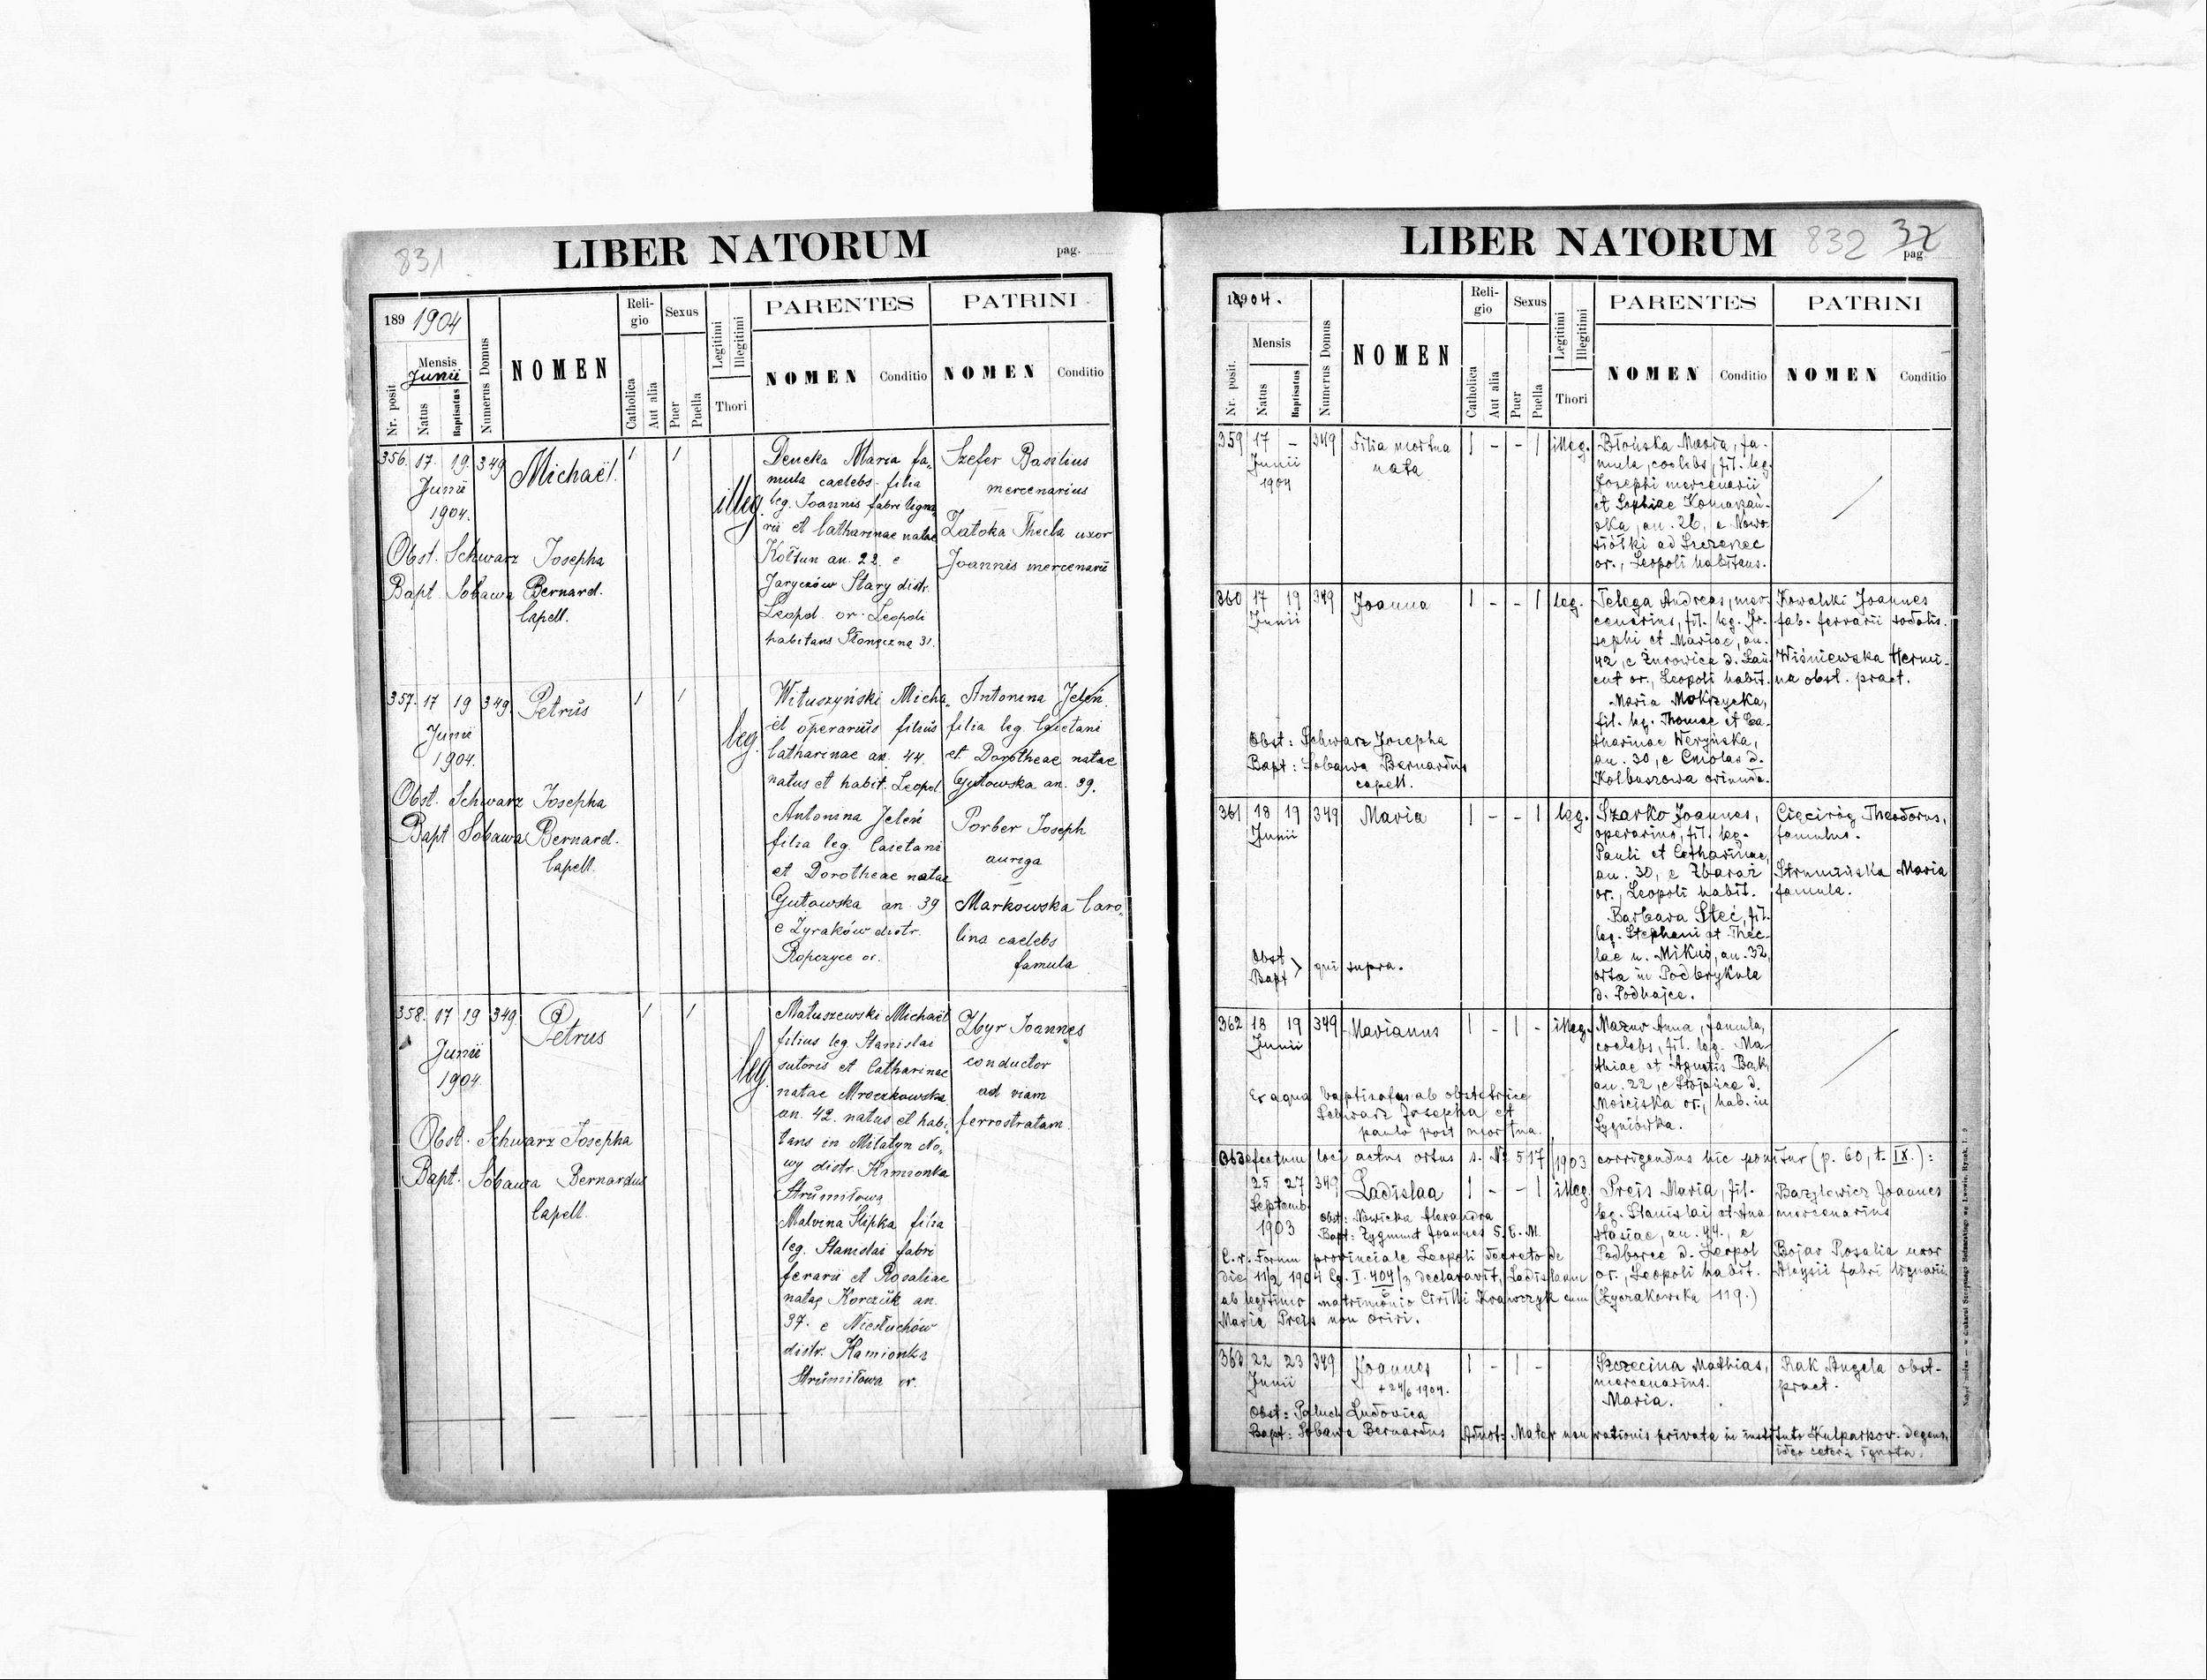 831
LIBER NATORUM
pag.
189 1904
Nr. posit
Mensis
Junii
Natus
Baptisatus
Numerus Domus
NOMEN
Reli-
gio
Catholica
Aut alia
Sexus
Puer
Puella
Legitimi
Illegitimi
Thori
PARENTES
NOMEN
Conditio
PATRINI
NOMEN
Conditio
356. 17. 19. 349 Michaël. 1 1
Junii
1904.
Obst. Schwarz Josepha
Bapt. Sobawa Bernard.
Capell.
illeg.
Dencka Maria fa-
mula caelebs filia
leg. Joannis fabri ligna-
rii et Catharinae natae
Kołtun an. 22. e
Jaryczów Stary distr.
Leopol. or. Leopoli
habitans Słoneczna 31.
Szefer Basilius
mercenarius
Zatoka Thecla uxor
Joannis mercenarii
357. 17 19 349. Petrus 1 1
Junii
1904.
Obst. Schwarz Josepha
Bapt Sobawa Bernard.
Capell.
leg.
Wituszyński Micha-
ël operarius filius
Catharinae an. 44.
natus et habit. Leopol.
Antonina Jeleń
filia leg. Caietani
et Dorotheae natae
Gutowska an. 39
e Żyraków distr.
Ropczyce or.
Antonina Jeleń
filia leg. Caietani
et Dorotheae natae
Gutowska an. 39.
Porber Joseph
auriga
Markowska Caro-
lina caelebs
famula
358. 17 19 349. Petrus 1 1
Junii
1904.
Obst. Schwarz Josepha
Bapt. Sobawa Bernardus
Capell.
leg.
Matuszewski Michaël
filius leg. Stanislai
sutoris et Catharinae
natae Mroczkowska
an. 42. natus et habi-
tans in Milatyn No-
wy distr. Kamionka
Strumiłowa
Malvina Slipka filia
leg. Stanislai fabri
ferarii et Rosaliae
natae Korczuk an.
37. e Niesłuchów
distr. Kamionka
Strumiłowa or.
Zbyr Joannes
conductor
ad viam
ferrostratam.
LIBER NATORUM
832
32
pag.
18904.
Nr. posit.
Mensis
Natus
Baptisatus
Numerus Domus
NOMEN
Reli-
gio
Catholica
Aut alia
Sexus
Puer
Puella
Legitimi
Illegitimi
Thori
PARENTES
NOMEN
Conditio
PATRINI
NOMEN
Conditio
359 17 - 349 Filia mortua 1 - - 1 illeg.
Junii
nata
1904
Błońska Maria, fa-
mula, coelebs, fil. leg.
Josephi mercenarii
et Sophiae Komarzań-
ska, an. 26, e Nowo-
siółki ad Szczerzec
or., Leopoli habitans.
360 17 19 349 Joanna 1 - - 1 leg.
Junii
Obst: Schwarz Josepha
Bapt: Sobawa Bernardus
capell.
Telega Andreas, mer-
cenarius, fil. leg. Jo-
sephi et Mariae, an.
42, e Żurowica d. Łań-
cut or., Leopoli habit.
Maria Mokrzycka,
fil. leg. Thomae et Ca-
tharinae Weryńska,
an. 30, e Cmolas d.
Kolbuszowa oriunda.
Kowalski Joannes
fab. ferrarii sodalis.
Wiśniewska Hermi-
na obst. pract.
361 18 19 349 Maria 1 - - 1 leg.
Junii
Obst
Bapt > qui supra.
Szarko Joannes,
operarius, fil. leg.
Pauli et Catharinae,
an. 30, e Zbaraż
or., Leopoli habit.
Barbara Steć, fil.
leg. Stephani et Thec-
lae n. Mikuś, an. 32,
orta in Podbrykula
d. Podhajce.
Cięciróg Theodorus,
famulus.
Strumińska Maria
famula.
362 18 19 349 Marianus 1 - 1 - illeg.
Junii
Ex aqua baptisatus ab obstetrice
Schwarz Josepha et
paulo post mortua.
Mazur Anna, famula,
coelebs, fil. leg. Ma-
thiae et Agnetis Bak,
an. 22, e Stojańce d.
Mościska or., hab. in
Sygniówka.
Ob defectum loci actus ortus s. № 517 1903 corrigendus hic ponitur (p. 60, t. IX.):
25 27 349 Ladislaa 1 - - 1 illeg.
Septemb.
1903
Obst: Nowicka Alexandra
Bapt: Zygmunt Joannes S. E. M.
C. r. Forum provinciale Leopoli decreto de
die 11/2 1904 Cg. I. 404/3 declaravit, Ladislaam
ab legitimo matrimonio Cirilli Krawczyk cum
Maria Preis non oriri.
Preis Maria, fil.
leg. Stanislai et Ana-
stasiae, an. 44., e
Podborce d. Leopol
or., Leopoli habit.
(Łyczakowska 119.)
Bazylewicz Joannes
mercenarius
Bojar Rosalia uxor
Aloysii fabri lignarii
363 22 23 349 Joannes 1 - 1 -
Junii
+ 24/6 1904.
Obst: Paluch Ludovica
Bapt: Sobawa Bernardus
Szczecina Mathias,
mercenarius.
Maria.
Rak Angela obst-
pract.
Adnot: Mater non rationis privata in instituto Kulparkov. degens,
ideo cetera ignota.